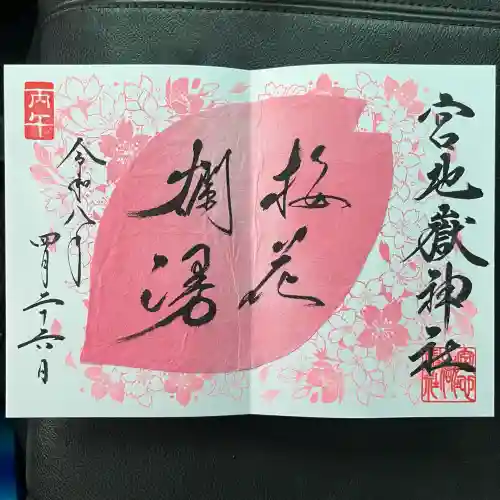 宮地嶽神社
桜花
爛漫
令和八年
四月二十六日
丙午